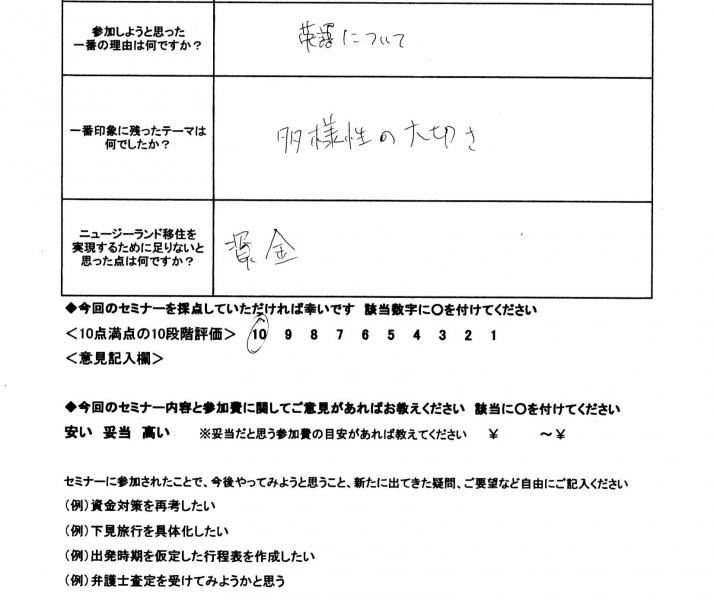 参加しようと思った
一番の理由は何ですか？
英語について
一番印象に残ったテーマは
何でしたか？
多様性の大切さ
ニュージーランド移住を
実現するために足りないと
思った点は何ですか？
資金
◆今回のセミナーを採点していただければ幸いです 該当数字に○を付けてください
＜10点満点の10段階評価＞ 10 9 8 7 6 5 4 3 2 1
＜意見記入欄＞
◆今回のセミナー内容と参加費に関してご意見があればお教えください 該当に○を付けてください
安い 妥当 高い ※妥当だと思う参加費の目安があれば教えてください ￥ ～￥
セミナーに参加されたことで、今後やってみようと思うこと、新たに出てきた疑問、ご要望など自由にご記入ください
（例）資金対策を再考したい
（例）下見旅行を具体化したい
（例）出発時期を仮定した行程表を作成したい
（例）弁護士査定を受けてみようかと思う